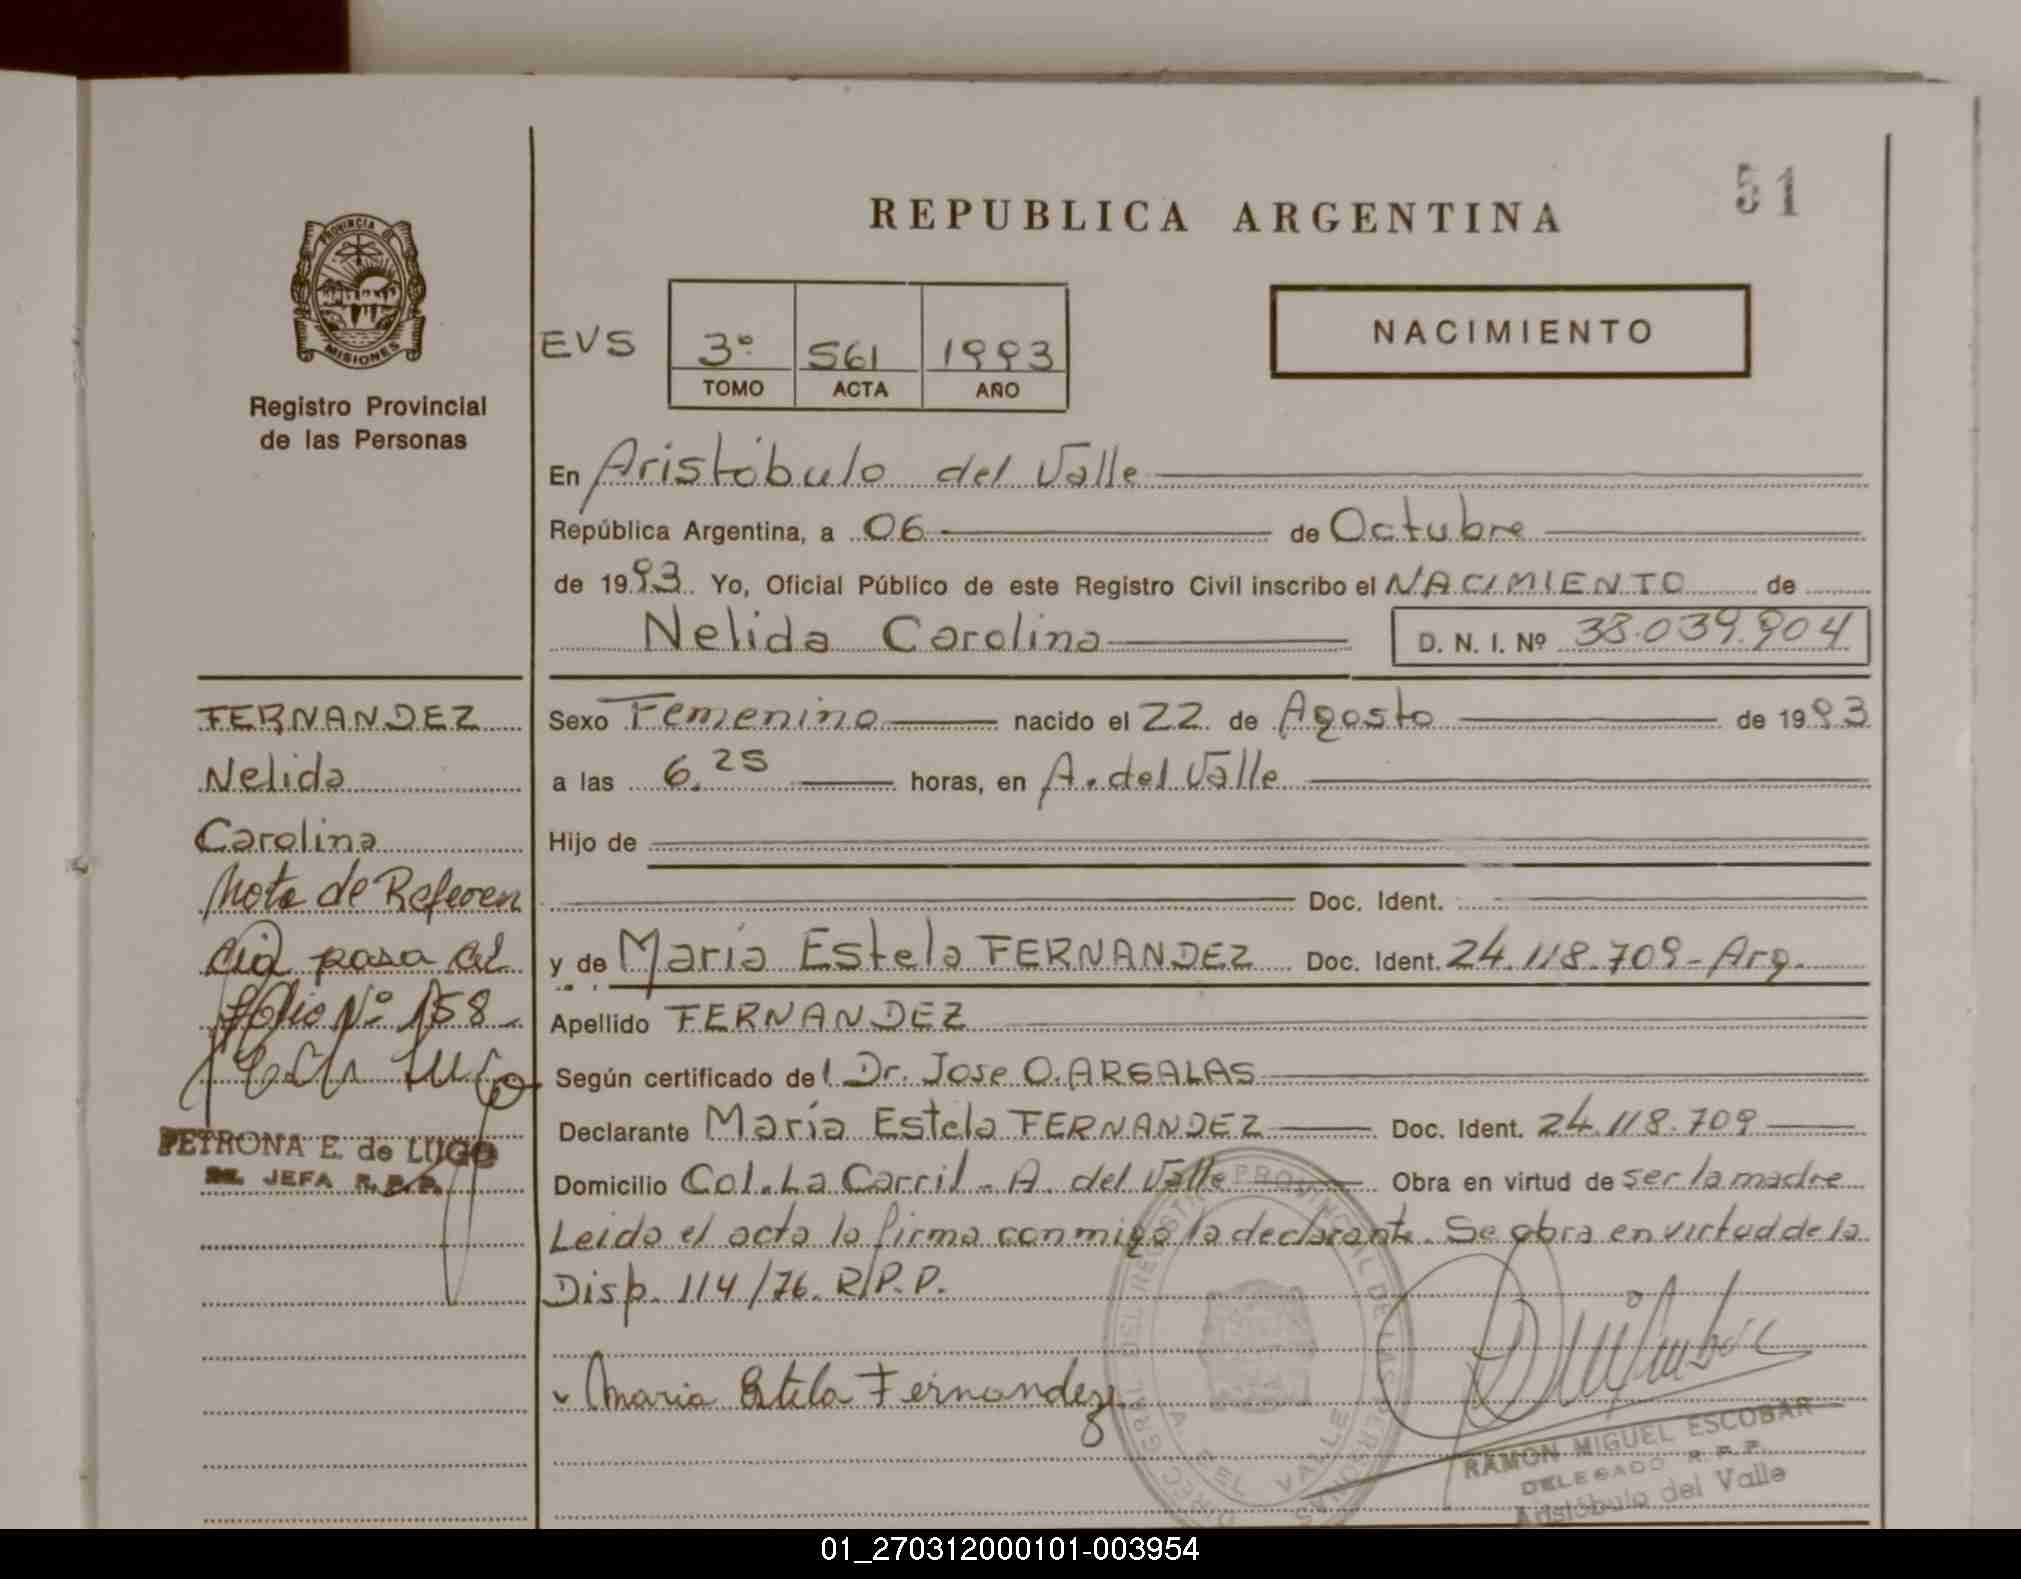 51
REPUBLICA ARGENTINA
PROVINCIA DE
MISIONES
Registro Provincial
de las Personas
EVS
3º 561 1993
TOMO ACTA AÑO
NACIMIENTO
En Aristóbulo del Valle
República Argentina, a 06 de Octubre
de 1993. Yo, Oficial Público de este Registro Civil inscribo el NACIMIENTO de
Nelida Carolina D. N. I. Nº 38.039.904
FERNANDEZ
Nelida
Carolina
Nota de Referen
cia pasa al
folio Nº 158
PETRONA E. de LUGO
JEFA R.P.P.
Sexo Femenino nacido el 22 de Agosto de 1993
a las 6.25 horas, en A. del Valle
Hijo de
Doc. Ident.
y de María Estela FERNANDEZ Doc. Ident. 24.118.709-Arg.
Apellido FERNANDEZ
Según certificado del Dr. Jose O. ARGALAS
Declarante María Estela FERNANDEZ Doc. Ident. 24.118.709
Domicilio Col. La Carril - A. del Valle Obra en virtud de ser la madre
Leida el acta la firma conmigo la declarante. Se obra en virtud de la
Disp. 114/76. R.P.P.
Maria Estela Fernandez
RAMON MIGUEL ESCOBAR
DELEGADO R.P.P.
Aristóbulo del Valle
A. DEL VALLE
01_270312000101-003954